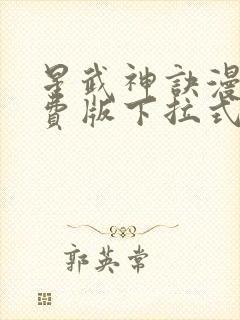 星武神訣漫
費版下拉式
郭英常